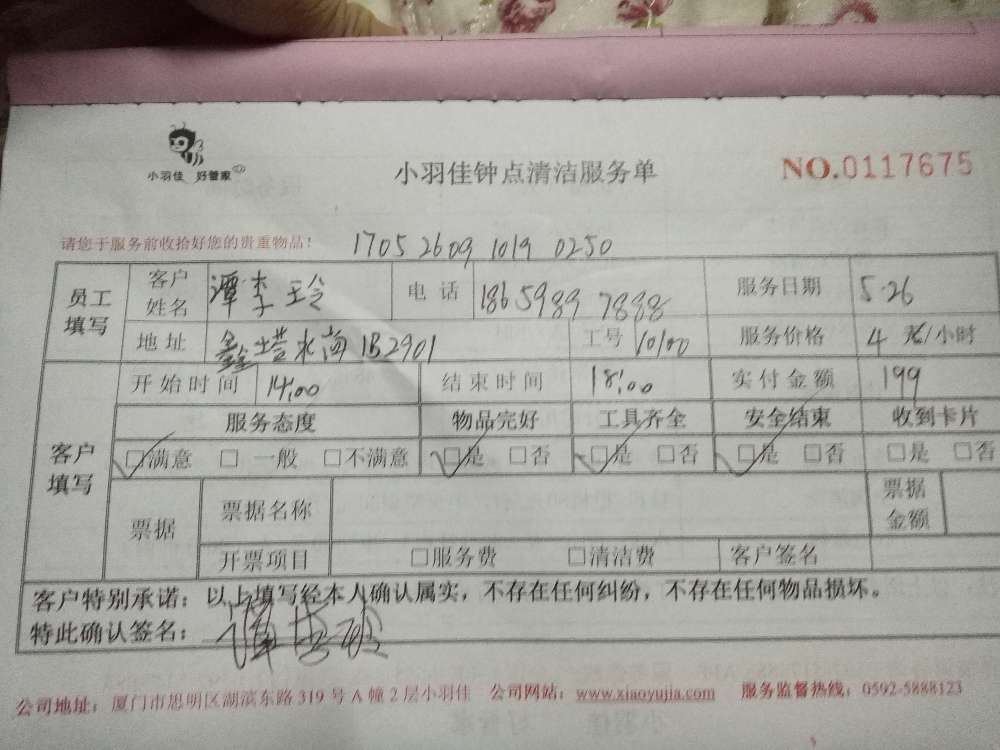 小羽佳 好管家
小羽佳钟点清洁服务单
NO.0117675
请您于服务前收拾好您的贵重物品！ 1705 2609 1019 0250
员工填写 客户姓名 谭李玲 电话 1865989 7888 服务日期 5.26
地址 鑫塔水尚1B2901 工号 10100 服务价格 4 元/小时
客户填写 开始时间 14:00 结束时间 18:00 实付金额 199
服务态度 物品完好 工具齐全 安全结束 收到卡片
☑满意 □一般 □不满意 ☑是 □否 ☑是 □否 ☑是 □否 □是 □否
票据 票据名称 票据金额
开票项目 □服务费 □清洁费 客户签名
客户特别承诺：以上填写经本人确认属实，不存在任何纠纷，不存在任何物品损坏。
特此确认签名：
公司地址：厦门市思明区湖滨东路319号A幢2层小羽佳 公司网站：www.xiaoyujia.com 服务监督热线：0592-5888123